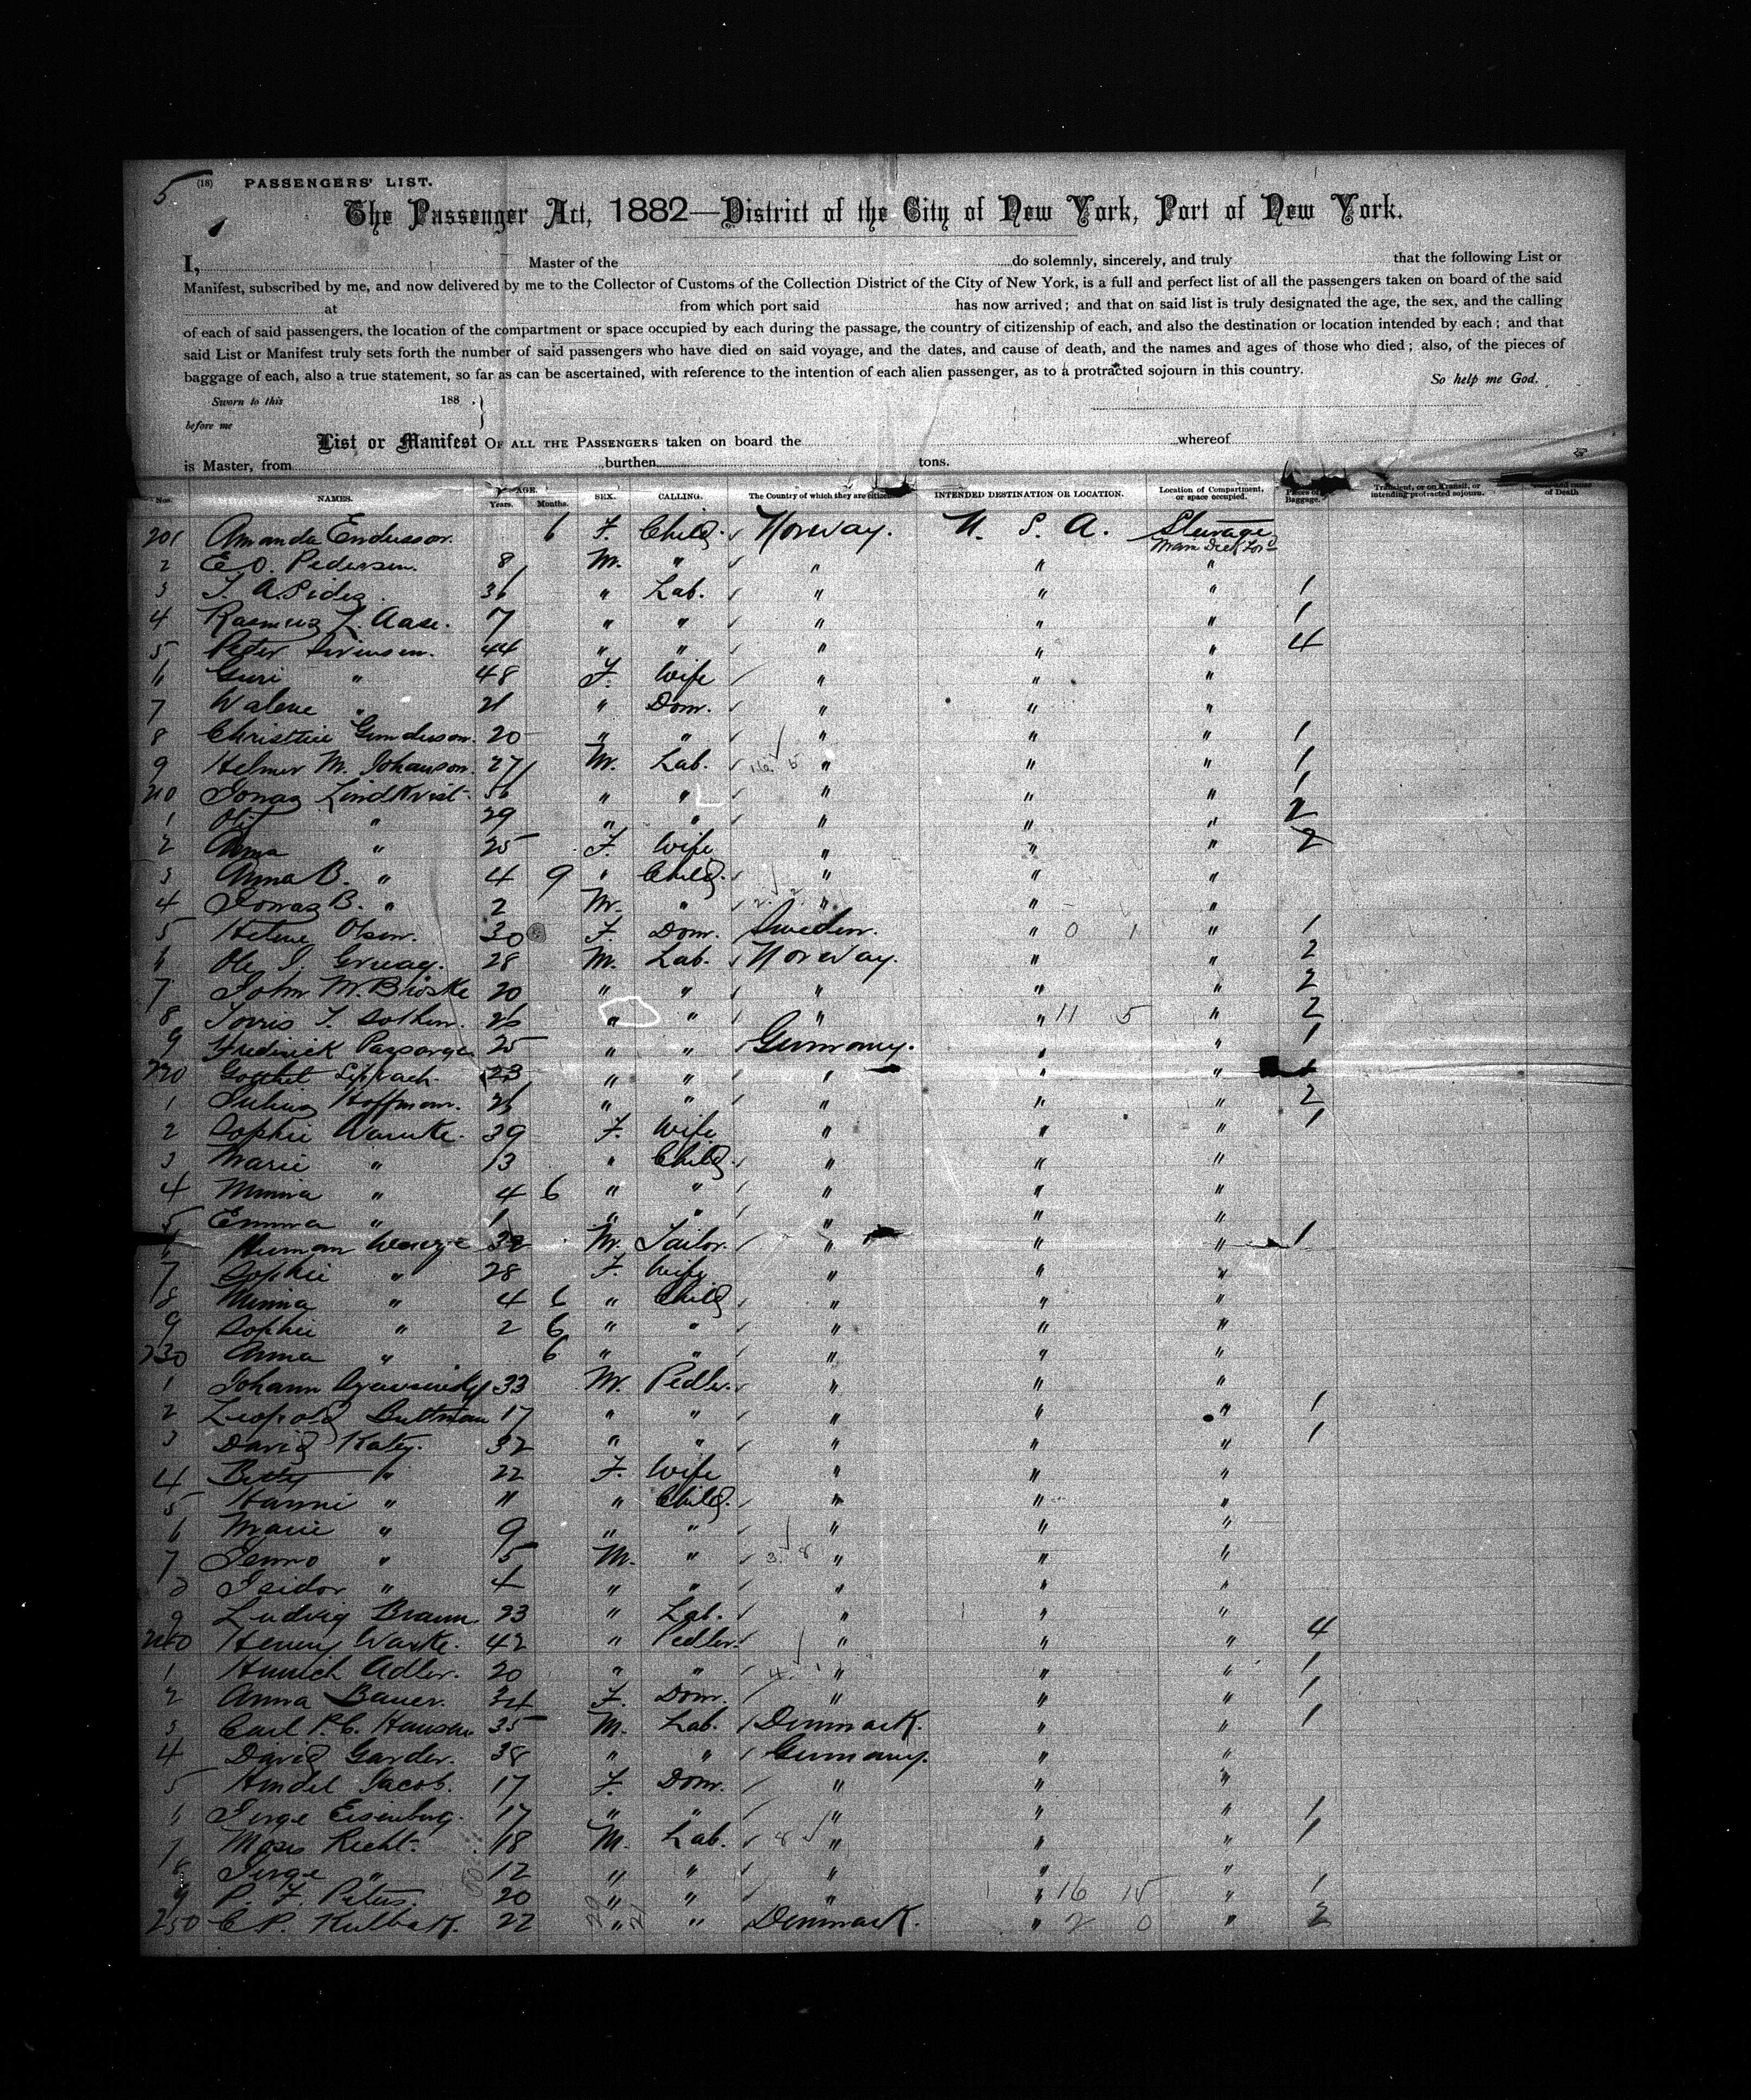 5
(18) PASSENGERS' LIST.
The Passenger Act, 1882—District of the City of New York, Port of New York.
I, Master of the do solemnly, sincerely, and truly that the following List or
Manifest, subscribed by me, and now delivered by me to the Collector of Customs of the Collection District of the City of New York, is a full and perfect list of all the passengers taken on board of the said
at from which port said has now arrived; and that on said list is truly designated the age, the sex, and the calling
of each of said passengers, the location of the compartment or space occupied by each during the passage, the country of citizenship of each, and also the destination or location intended by each; and that
said List or Manifest truly sets forth the number of said passengers who have died on said voyage, and the dates, and cause of death, and the names and ages of those who died; also, of the pieces of
baggage of each, also a true statement, so far as can be ascertained, with reference to the intention of each alien passenger, as to a protracted sojourn in this country. So help me God.
Sworn to this 188
before me
List or Manifest OF ALL THE PASSENGERS taken on board the whereof
is Master, from burthen tons.
Nos. NAMES. AGE. Years. Months. SEX. CALLING. The Country of which they are citizens. INTENDED DESTINATION OR LOCATION. Location of Compartment, or space occupied. Pieces of Baggage. Transient, or on Transit, or intending protracted sojourn. cause of Death
201 Amanda Enderson. 6 F. Child. Norway. U. S. A. Steerage
2 E O. Pedersen. 8 M. " " " "
3 36 " Lab. " " " 1
4 Rasmus L. Aase. 7 " " " " " 1
5 Peter 44 " " " " " 4
6 Guri " 48 F. Wife " " "
7 Walene " 21 " Dom. " " "
8 Christine Gunderson. 20 " " " " " 1
9 Helmer M. Johanson. 27 M. Lab. " " " 1
210 Jonas Lindkvist. 36 " " " " " 1
1 " 29 " " " " " 2
2 Anna " 25 F. Wife " " " 2
3 Anna B. " 4 9 " Child. " " "
4 Jonas B. " 2 M. " " " "
5 Helene Olsen. 30 F. Dom. Sweden. " 0 1 " 1
6 Ole 28 M. Lab. Norway. " " 2
7 John M. 20 " " " " " 2
8 26 " " " " 11 5 " 2
9 Frederick 25 " " Germany. " " 1
220 23 " " " " "
1 Julius Hoffmann. 26 " " " " " 2
2 Sophie Warnke. 39 F. Wife " " " 1
3 Marie " 13 " Child. " " "
4 Minna " 4 6 " " " " "
5 Emma " 1 " " " " "
6 Herman 32 M. Tailor. " " " 1
7 Sophie " 28 F. Wife " " "
8 Minna " 4 6 " Child " " "
9 Sophie " 2 6 " " " " "
230 Anna " 6 " " " " "
1 Johann 33 M. Pedler. " " "
2 Leopold Buttman 17 " " " " " 1
3 David Katz. 32 " " " " " 1
4 Betty " 22 F. Wife " " "
5 Hanni " 11 " Child. " " "
6 Marie " 9 " " " " "
7 " 5 M. " " " "
8 Isidor " 4 " " " " "
9 Ludwig Braun 23 " Lab. " " "
240 Henry Warke. 42 " Pedler. " " " 4
1 Heinrich Adler. 20 " " " " " 1
2 Anna Bauer. 34 F. Dom. " " " 1
3 Carl P. C. Hansen 35 M. Lab. Denmark. " " 1
4 David Garder. 38 " " Germany. " "
5 Hendel Jacob. 17 F. Dom. " " "
6 Eisenberg. 17 " " " " " 1
7 Moses Recht. 18 M. Lab. " " " 1
8 " 12 " " " " "
9 P. F. Peters 20 " " " " 16 15 " 1
250 C P. 22 " " Denmark. " 2 0 " 2